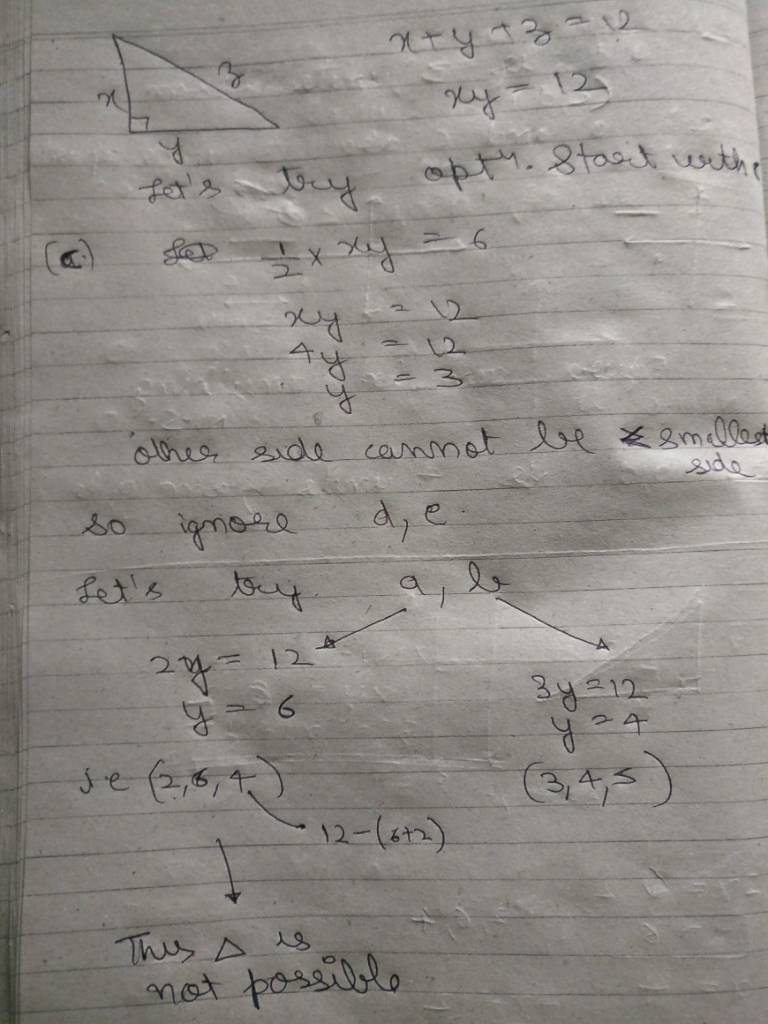 x + y + z = 12
xy = 12
x
z
y
Let's try optn. Start with c
(c) 1/2 × xy = 6
xy = 12
4y = 12
y = 3
other side cannot be smallest
side
so ignore d, e.
Let's try a, b
2y = 12
y = 6
3y = 12
y = 4
ie (2, 6, 4)
(3, 4, 5)
12 - (6+2)
This Δ is
not possible